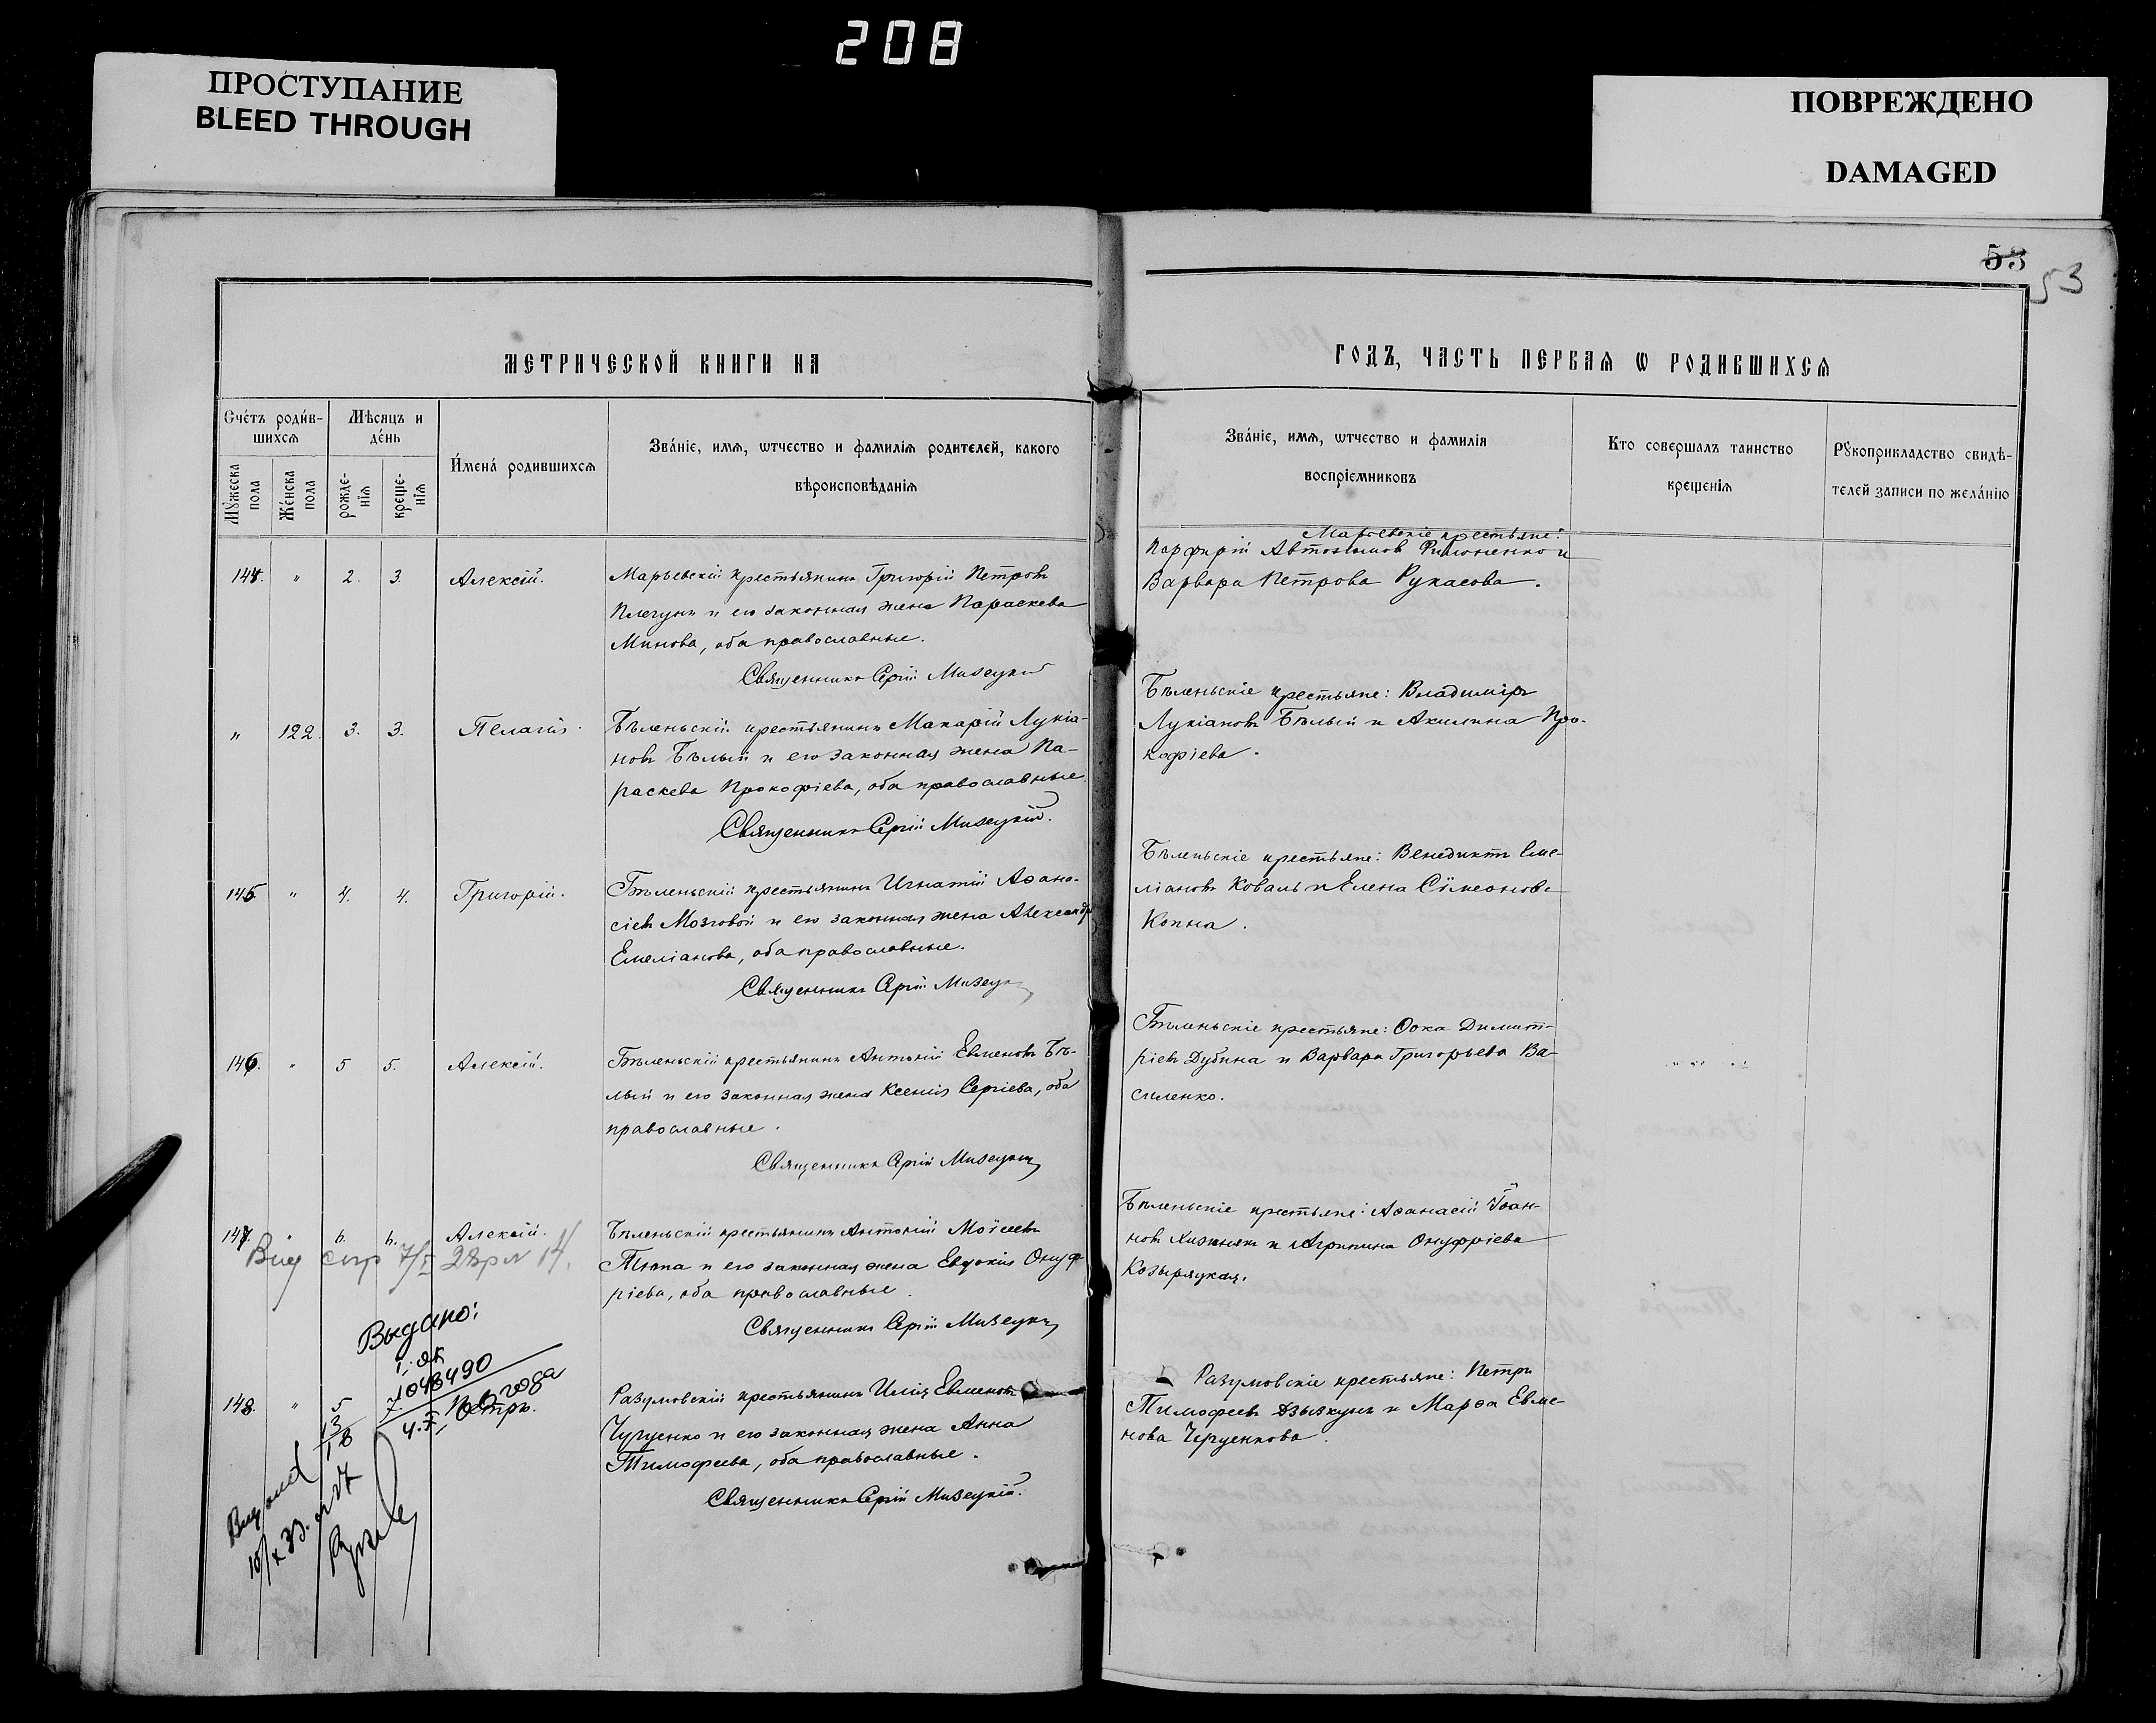 208
ПРОСТУПАНИЕ
BLEED THROUGH
ПОВРЕЖДЕНО
DAMAGED
53
53
МЕТРИЧЕСКОЙ КНИГИ НА
ГОДЪ, ЧАСТЬ ПЕРВАЯ Ѡ РОДИВШИХСЯ
Счетъ родив-
шихся
Мужеска пола
Женска пола
Мѣсяцъ и
день
рожде-
нія
креще-
нія
Имена родившихся
Званіе, имя, ѡтчество и фамилія родителей, какого
вѣроисповѣданія
Званіе, имя, ѡтчество и фамилія
воспріемниковъ
Кто совершалъ таинство
крещенія
Рꙋкоприкладство свидѣ-
телей записи по желанію
144. " 2. 3. Алексій.
Марьевскій крестьянинъ Григорій Петровъ
Плегунъ и его законная жена Параскева
Минова, оба православные.
Священникъ Сергій Мизецкій
Марьевскіе крестьяне:
Порфирій Автономов Филоненко и
Варвара Петрова Рукасова.
" 122. 3. 3. Пелагія.
Бѣленьскій крестьянинъ Макарій Лукіа-
новъ Бѣлый и его законная жена Па-
раскева Прокофіева, оба православные
Священникъ Сергій Мизецкій.
Бѣленьскіе крестьяне: Владиміръ
Лукіановъ Бѣлый и Акилина Про-
кофіева.
145. " 4. 4. Григорій.
Бѣленьскій крестьянинъ Игнатій Аѳана-
сіевъ Мозговой и его законная жена Александра
Емеліанова, оба православные.
Священникъ Сергій Мизецк
Бѣленьскіе крестьяне: Венедиктъ Еме-
ліановъ Коваль и Елена Сѵмеонова
Копна.
146. " 5 5. Алексій.
Бѣленьскій крестьянинъ Антоній Евменовъ Бѣ-
лый и его законная жена Ксенія Сергіева, оба
православные.
Священникъ Сергій Мизецкій
Бѣленьскіе крестьяне: Ѳока Димит-
ріевъ Дубина и Варвара Григорьева Ва-
силенко.
147. 6. 6. Алексій.
Бѣленьскій крестьянинъ Антоній Моѵсеевъ
Тюпа и его законная жена Евдокія Онуф-
ріева, оба православные.
Священникъ Сергій Мизецкій
Бѣленьскіе крестьяне: Аѳанасій Іоан-
новъ Хижнякъ и Агрипина Онуфріева
Козыряцкая.
Выдано:
148. " 5 7. Петръ.
Разумовскій крестьянинъ Илія Евменовъ
Чугуенко и его законная жена Анна
Тимоѳеева, оба православные.
Священникъ Сергій Мизецкій.
Разумовскіе крестьяне: Петръ
Тимоѳеевъ Дзыкунъ и Марѳа Евме-
нова Чугуенкова.